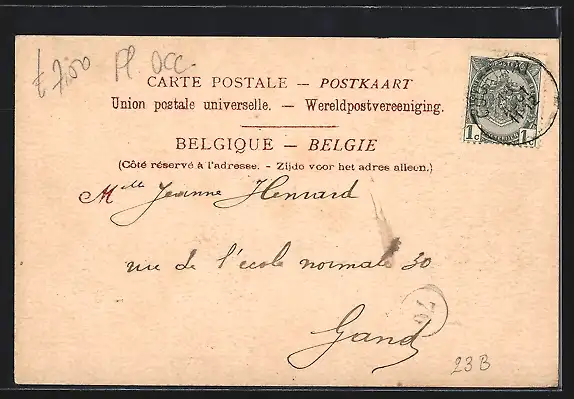 £ 7.50 Pl. Occ.
CARTE POSTALE — POSTKAART
Union postale universelle. — Wereldpostvereeniging.
BELGIQUE — BELGIE
(Côté réservé à l'adresse. - Zijde voor het adres alleen.)
1c 1c
Mlle Jeanne Henrard
rue de l'école normale 30
Gand
23B